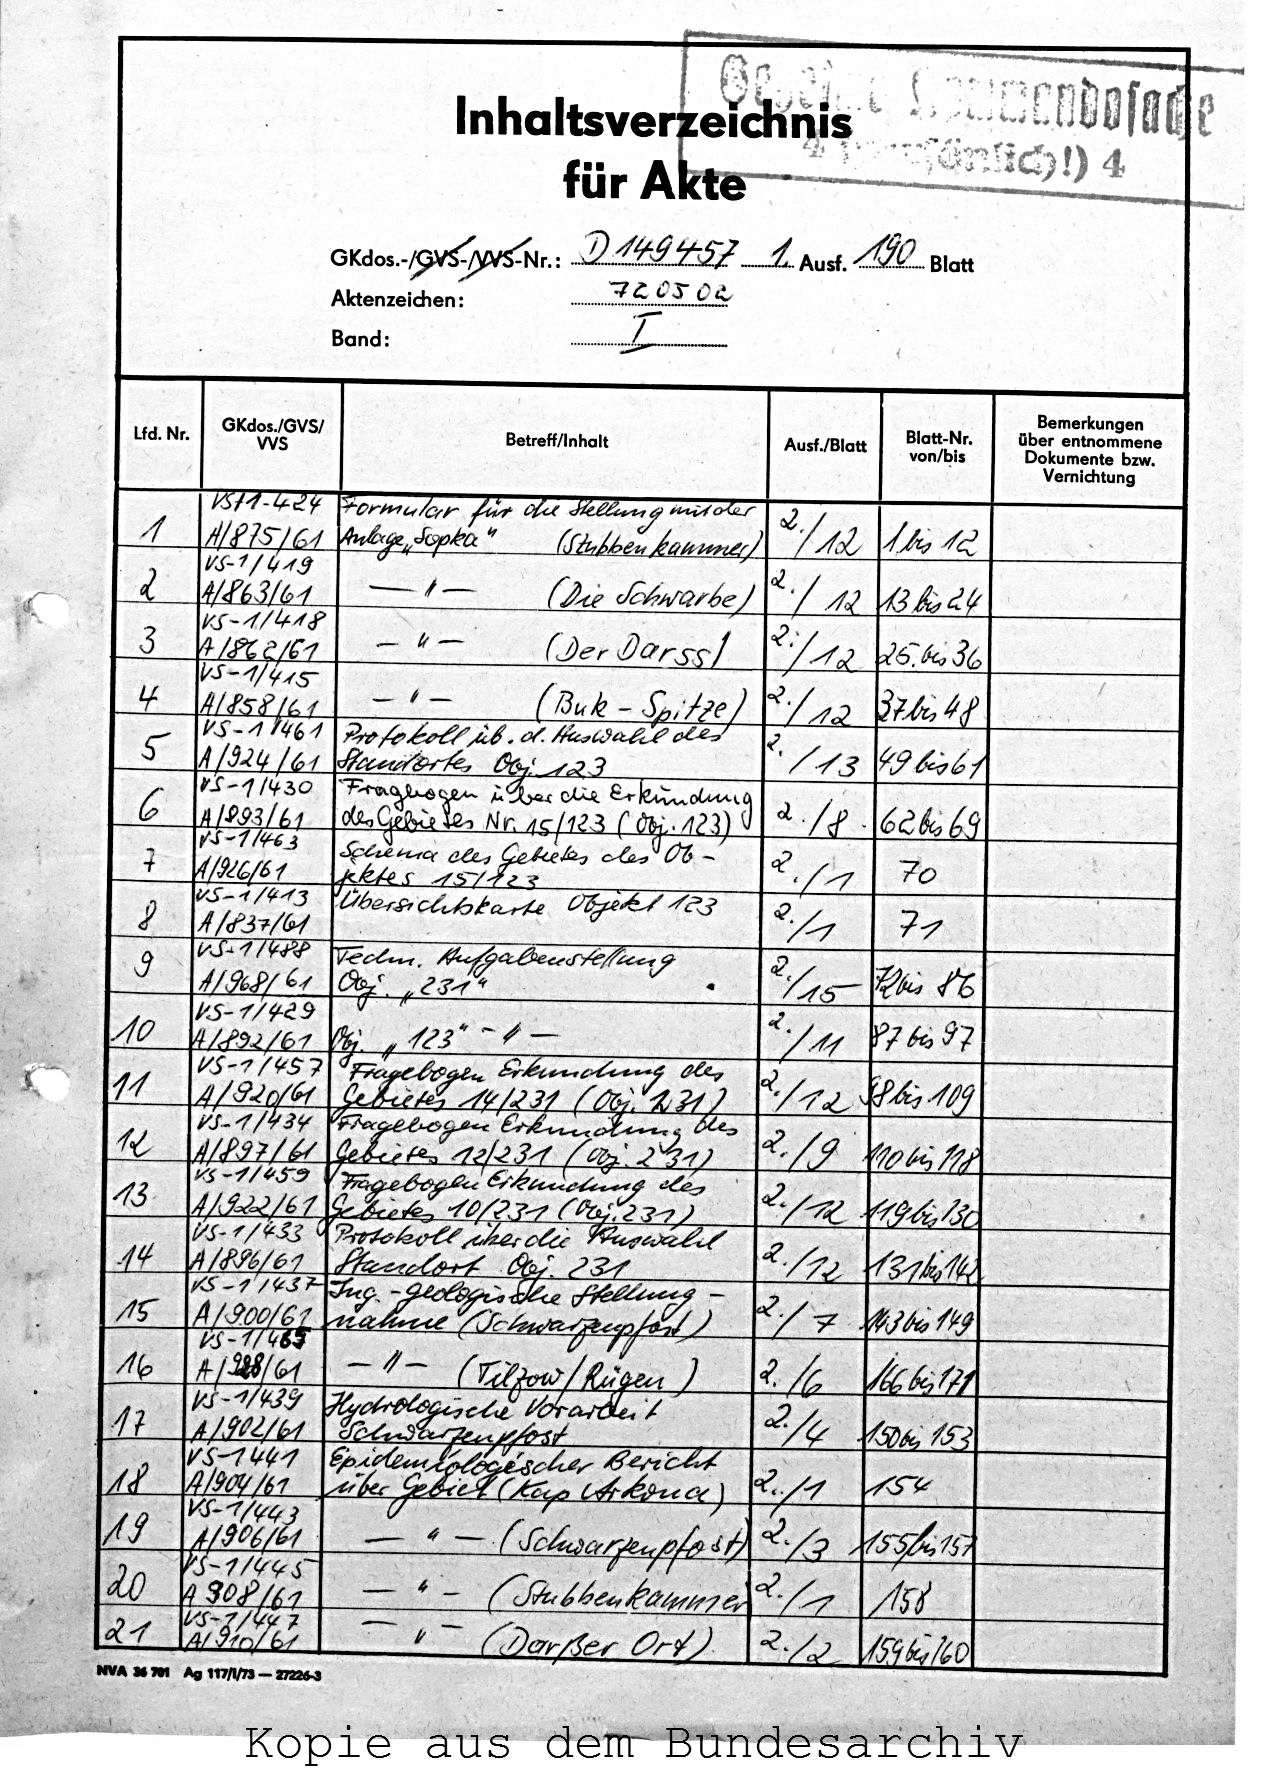 Geheime Kommandosache
4 4
Inhaltsverzeichnis
für Akte
GKdos.-/GVS-/VVS-Nr.: D 149457 1. Ausf. 190 Blatt
Aktenzeichen: 720502
Band: I
Lfd. Nr. GKdos./GVS/ VVS Betreff/Inhalt Ausf./Blatt Blatt-Nr. von/bis Bemerkungen über entnommene Dokumente bzw. Vernichtung
VS/1-424 Formular für die Stellung mit der
1 A/875/61 Anlage „Sopka“ (Stubbenkammer) 2./12 1 bis 12
VS-1/419
2 A/863/61 — " — (Die Schwarbe) 2./12 13 bis 24
VS-1/418
3 A/862/61 — " — (Der Darss) 2./12 25. bis 36
VS-1/415
4 A/858/61 — " — (Buk-Spitze) 2./12 37 bis 48
VS-1/461 Protokoll üb. d. Auswahl des
5 A/924/61 Standortes Obj. 123 2./13 49 bis 61
VS-1/430 Fragbogen über die Erkundung
6 A/893/61 des Gebietes Nr. 15/123 (Obj. 123) 2./8 62 bis 69
VS-1/463 Schema des Gebietes des Ob-
7 A/926/61 jektes 15/123 2./1 70
VS-1/413 Übersichtskarte Objekt 123
8 A/837/61 2./1 71
VS-1/488 Techn. Aufgabenstellung
9 A/968/61 Obj. „231“ 2./15 72 bis 86
VS-1/429
10 A/892/61 Obj. „123“ — " — 2./11 87 bis 97
VS-1/457 Fragebogen Erkundung des
11 A/920/61 Gebietes 14/231 (Obj. 231) 2./12 98 bis 109
VS-1/434 Fragebogen Erkundung des
12 A/897/61 Gebietes 12/231 (Obj. 231) 2./9 110 bis 118
VS-1/459 Fragebogen Erkundung des
13 A/922/61 Gebietes 10/231 (Obj. 231) 2./12 119 bis 130
VS-1/433 Protokoll über die Auswahl
14 A/896/61 Standort Obj. 231 2./12 131 bis 142
VS-1/437 Ing.-geologische Stellung-
15 A/900/61 nahme (Schwarzenpfost) 2./7 143 bis 149
VS-1/465
16 A/928/61 — " — (Tilzow/Rügen) 2./6 166 bis 171
VS-1/439 Hydrologische Vorarbeit
17 A/902/61 Schwarzenpfost 2./4 150 bis 153
VS-1441 Epidemiologischer Bericht
18 A/904/61 über Gebiet (Kap Arkona) 2./1 154
VS-1/443
19 A/906/61 — " — (Schwarzenpfost) 2./3 155 bis 157
VS-1/445
20 A 908/61 — " — (Stubbenkammer) 2./1 158
VS-1/447
21 A/910/61 — " (Darßer Ort) 2./2 159 bis 160
NVA 36 701 Ag 117/I/73 — 27226-3
Kopie aus dem Bundesarchiv